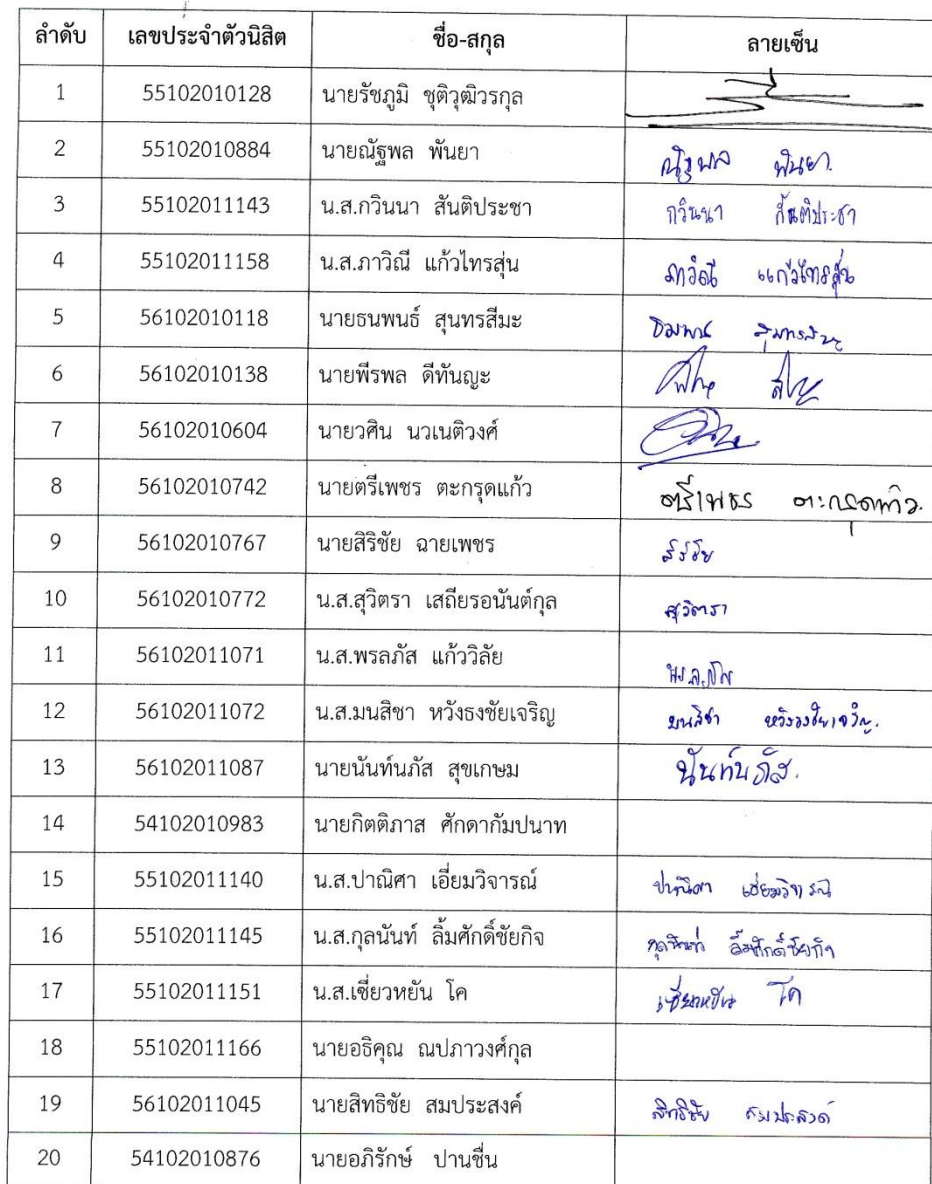 ลำดับ เลขประจำตัวนิสิต ชื่อ-สกุล ลายเซ็น
1 55102010128 นายรัชภูมิ ชุติวุฒิวรกุล
2 55102010884 นายณัฐพล พันยา ณัฐพล พันยา
3 55102011143 น.ส.กวินนา สันติประชา กวินนา สันติประชา
4 55102011158 น.ส.ภาวิณี แก้วไทรสุ่น ภาวิณี แก้วไทรสุ่น
5 56102010118 นายธนพนธ์ สุนทรสีมะ
6 56102010138 นายพีรพล ดีทันญะ
7 56102010604 นายวศิน นวเนติวงศ์
8 56102010742 นายตรีเพชร ตะกรุดแก้ว ตรีเพชร ตะกรุดแก้ว
9 56102010767 นายสิริชัย ฉายเพชร สิริชัย
10 56102010772 น.ส.สุวิตรา เสถียรอนันต์กุล สุวิตรา
11 56102011071 น.ส.พรลภัส แก้ววิลัย พรลภัส
12 56102011072 น.ส.มนสิชา หวังธงชัยเจริญ มนสิชา หวังธงชัยเจริญ
13 56102011087 นายนันท์นภัส สุขเกษม นันท์นภัส
14 54102010983 นายกิตติภาส ศักดากัมปนาท
15 55102011140 น.ส.ปาณิศา เอี่ยมวิจารณ์ ปาณิศา เอี่ยมวิจารณ์
16 55102011145 น.ส.กุลนันท์ ลิ้มศักดิ์ชัยกิจ กุลนันท์ ลิ้มศักดิ์ชัยกิจ
17 55102011151 น.ส.เซี่ยวหยัน โค เซี่ยวหยัน โค
18 55102011166 นายอธิคุณ ณปภาวงศ์กุล
19 56102011045 นายสิทธิชัย สมประสงค์ สิทธิชัย สมประสงค์
20 54102010876 นายอภิรักษ์ ปานชื่น